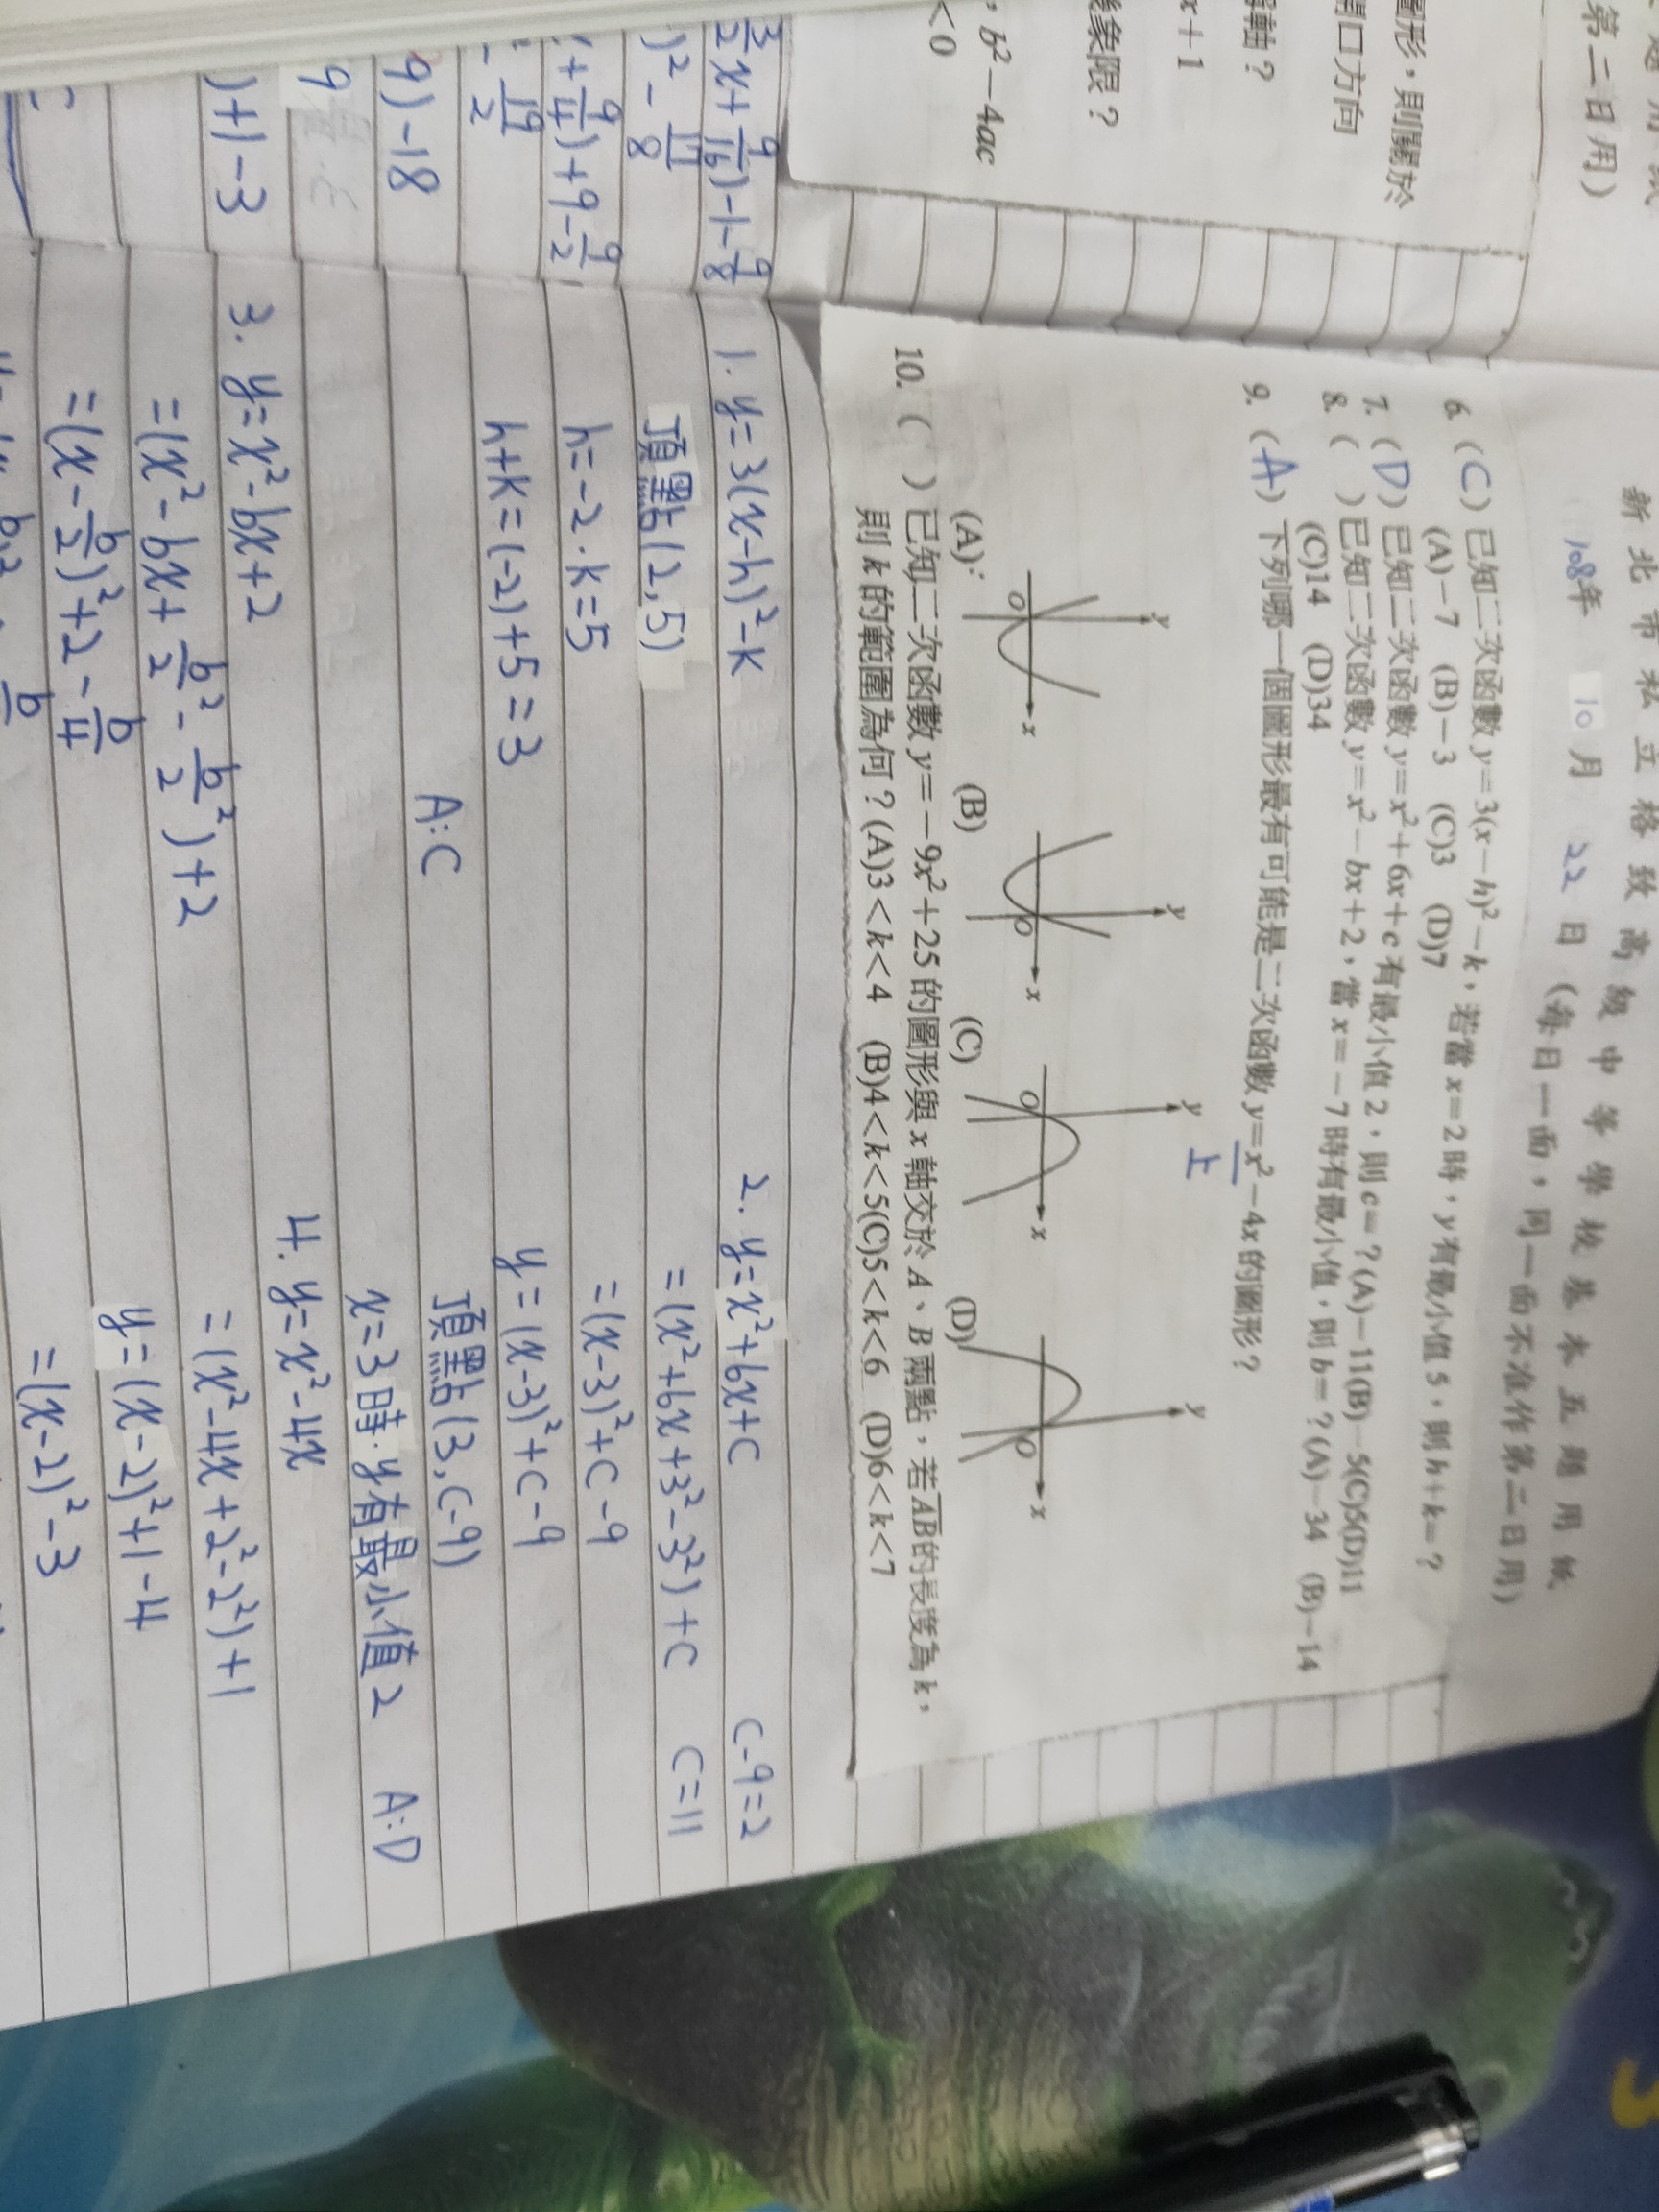 第二日用)
圖形，則關於
開口方向
軸？
x+1
象限？
，b²－4ac
<0
新北市私立格致高級中等學校基本五題用紙
108年 10月 22日 (每日一面，同一面不准作第二日用)
6. (C) 已知二次函數 y=3(x－h)²－k，若當 x=2 時，y 有最小值 5，則 h+k=？
(A)－7 (B)－3 (C)3 (D)7
7. (D) 已知二次函數 y=x²+6x+c 有最小值 2，則 c=？(A)－11(B)－5(C)5(D)11
8. ( ) 已知二次函數 y=x²－bx+2，當 x=－7 時有最小值，則 b=？(A)－34 (B)－14
(C)14 (D)34
9. (A) 下列哪一個圖形最有可能是二次函數 y=x²－4x 的圖形？
上
(A) (B) (C) (D)
y y y y
O x O x O x O x
10. ( ) 已知二次函數 y=－9x²+25 的圖形與 x 軸交於 A、B 兩點，若 AB 的長度為 k，
則 k 的範圍為何？(A)3<k<4 (B)4<k<5(C)5<k<6 (D)6<k<7
3/2 x+9/16)-1-9/8
)²-17/8
+9/4)+9-2 9
-19/2
9)-18
9
)+1-3
1. y=3(x-h)²-k
頂點(2,5)
h=-2.k=5
h+k=(-2)+5=3
A:C
2. y=x²+6x+c
=(x²+6x+3²-3²)+c
=(x-3)²+c-9
y=(x-3)²+c-9
頂點(3,c-9)
x=3時.y有最小值2
c-9=2
c=11
A:D
3. y=x²-bx+2
=(x²-bx+b²/2-b²/2)+2
=(x-b/2)²+2-b/4
4. y=x²-4x
=(x²-4x+2²-2²)+1
y=(x-2)²+1-4
=(x-2)²-3